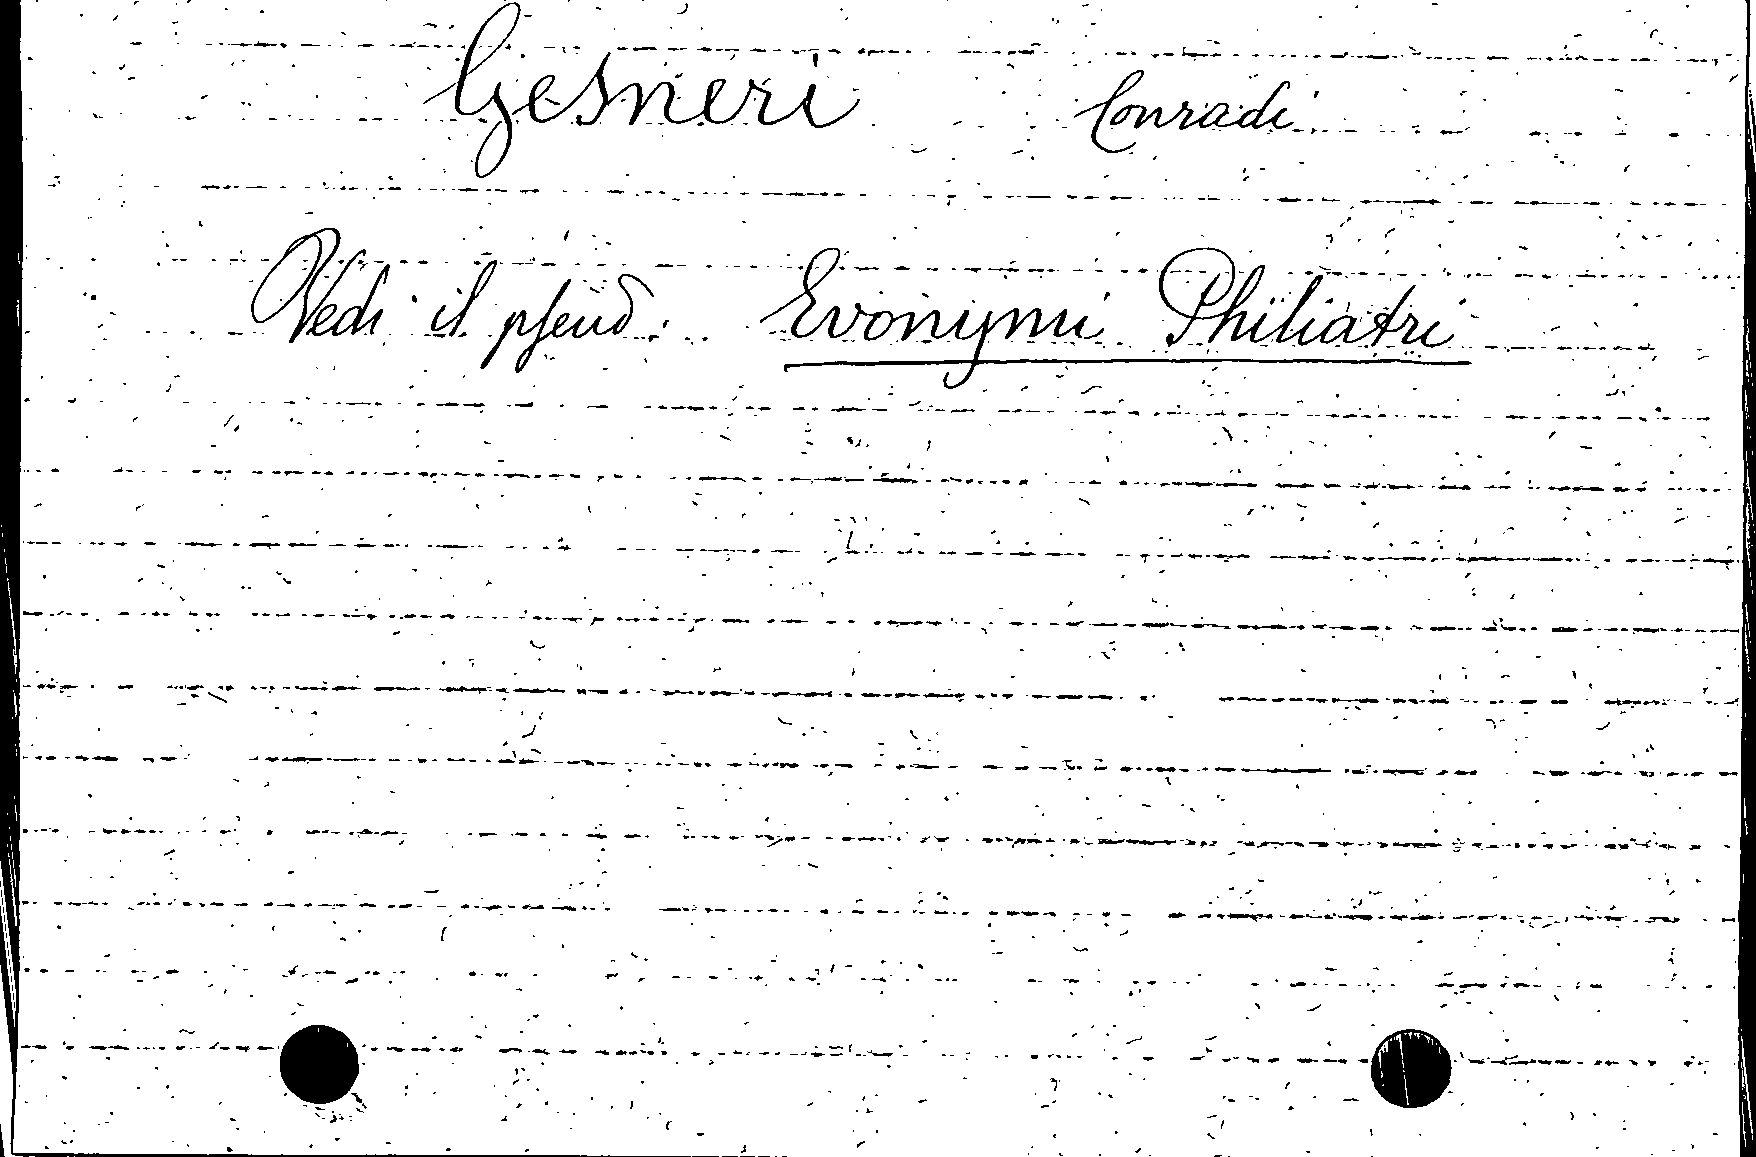 Gesneri Conradi
Vedi il pseud. Evonymi Philiatri